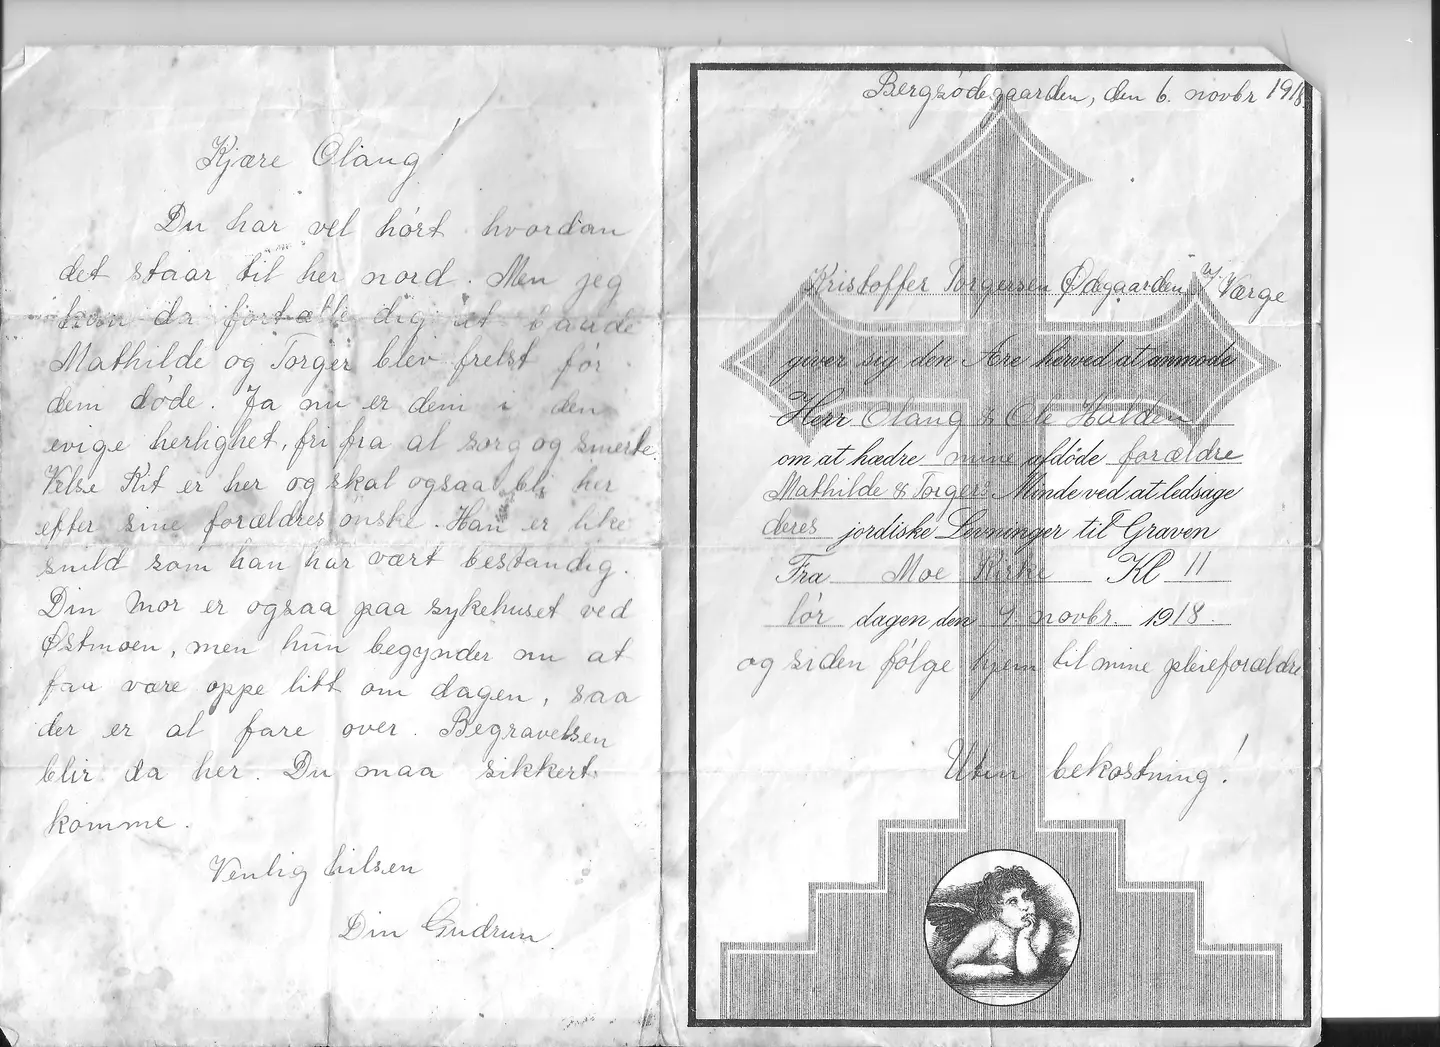 Kjære Olang!
Du har vel hørt hvordan
det staar til her nord. Men jeg
kan da fortælle dig at baade
Mathilde og Torger blev frelst før
dem døde. Ja nu er dem i den
evige herlighet, fri fra al sorg og smerte.
Kit er her og skal ogsaa bli her
efter sine forældres ønske. Han er like
snild som han har vært bestandig.
Din Mor er ogsaa paa sykehuset ved
Østmoen, men hun begynder nu at
faa være oppe litt om dagen, saa
der er al fare over. Begravelsen
blir da her. Du maa sikkert
komme.
Venlig hilsen
Din Gudrun.
Bergsødegaarden, den 6. novbr 1918
Kristoffer Torgersen Ødegaarden Værge
giver sig den Ære herved at anmode
Herr Olang & Ole Halden
om at hædre mine afdøde forældre
Mathilde & Torgers Minde ved at ledsage
deres jordiske Levninger til Graven
Fra Moe Kirke Kl 11
lør dagen den novbr. 1918.
og siden følge hjem til mine pleieforældre
Uten bekostning!